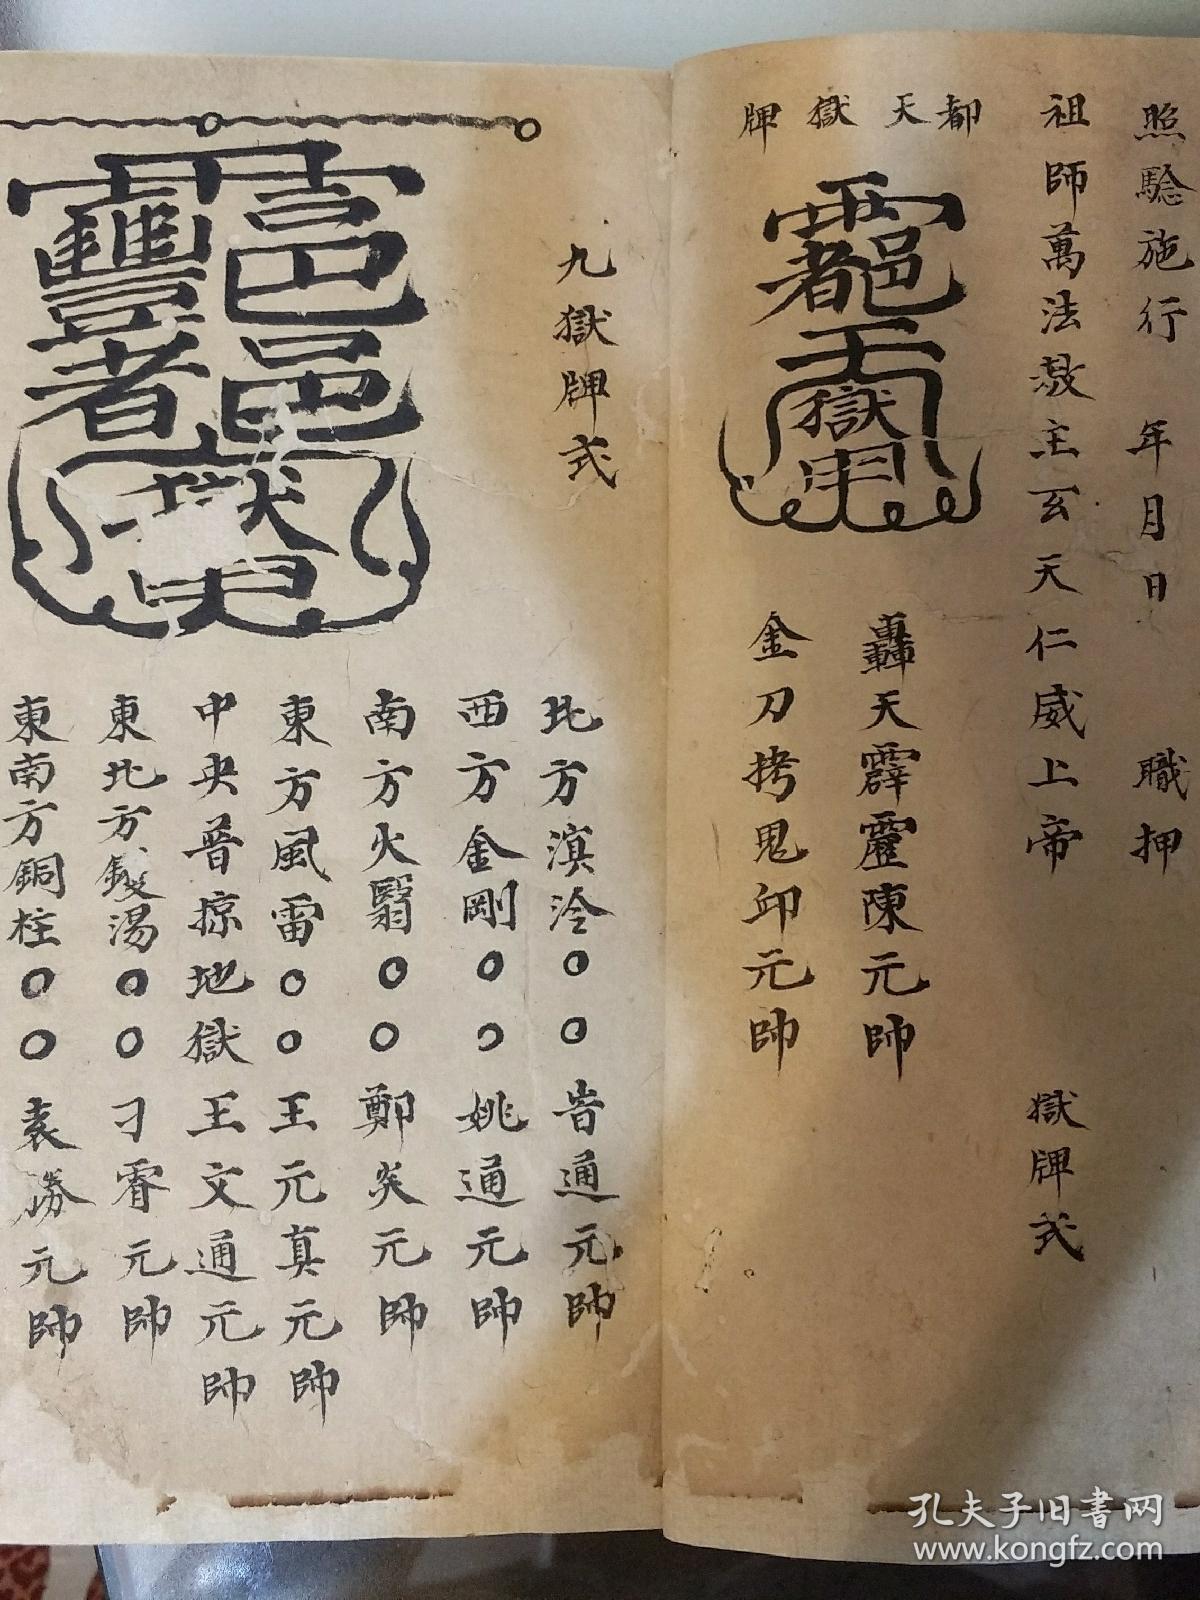 照驗施行 年月日 職押
祖師萬法教主玄天仁威上帝 獄牌式
都天獄牌
轟天霹靂陳元帥
金刀拷鬼邱元帥
九獄牌式
北方溟泠〇〇 通元帥
西方金剛〇〇姚通元帥
南方火翳〇〇鄭炎元帥
東方風雷〇〇王元真元帥
中央普掠地獄王文通元帥
東北方鑊湯〇〇刁霄元帥
東南方銅柱〇〇袁勝元帥
孔夫子旧书网
www.kongfz.com